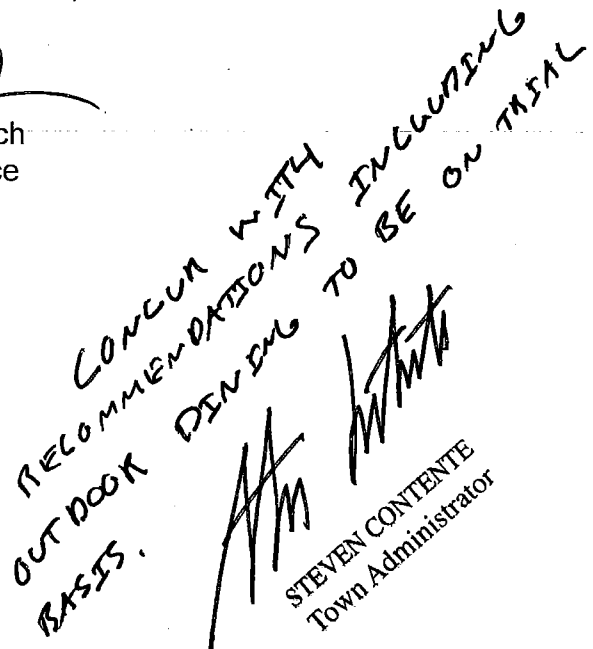 ch
ce
CONCUR WITH
RECOMMENDATIONS INCLUDING
OUTDOOR DINING TO BE ON TRIAL
BASIS.
STEVEN CONTENTE
Town Administrator